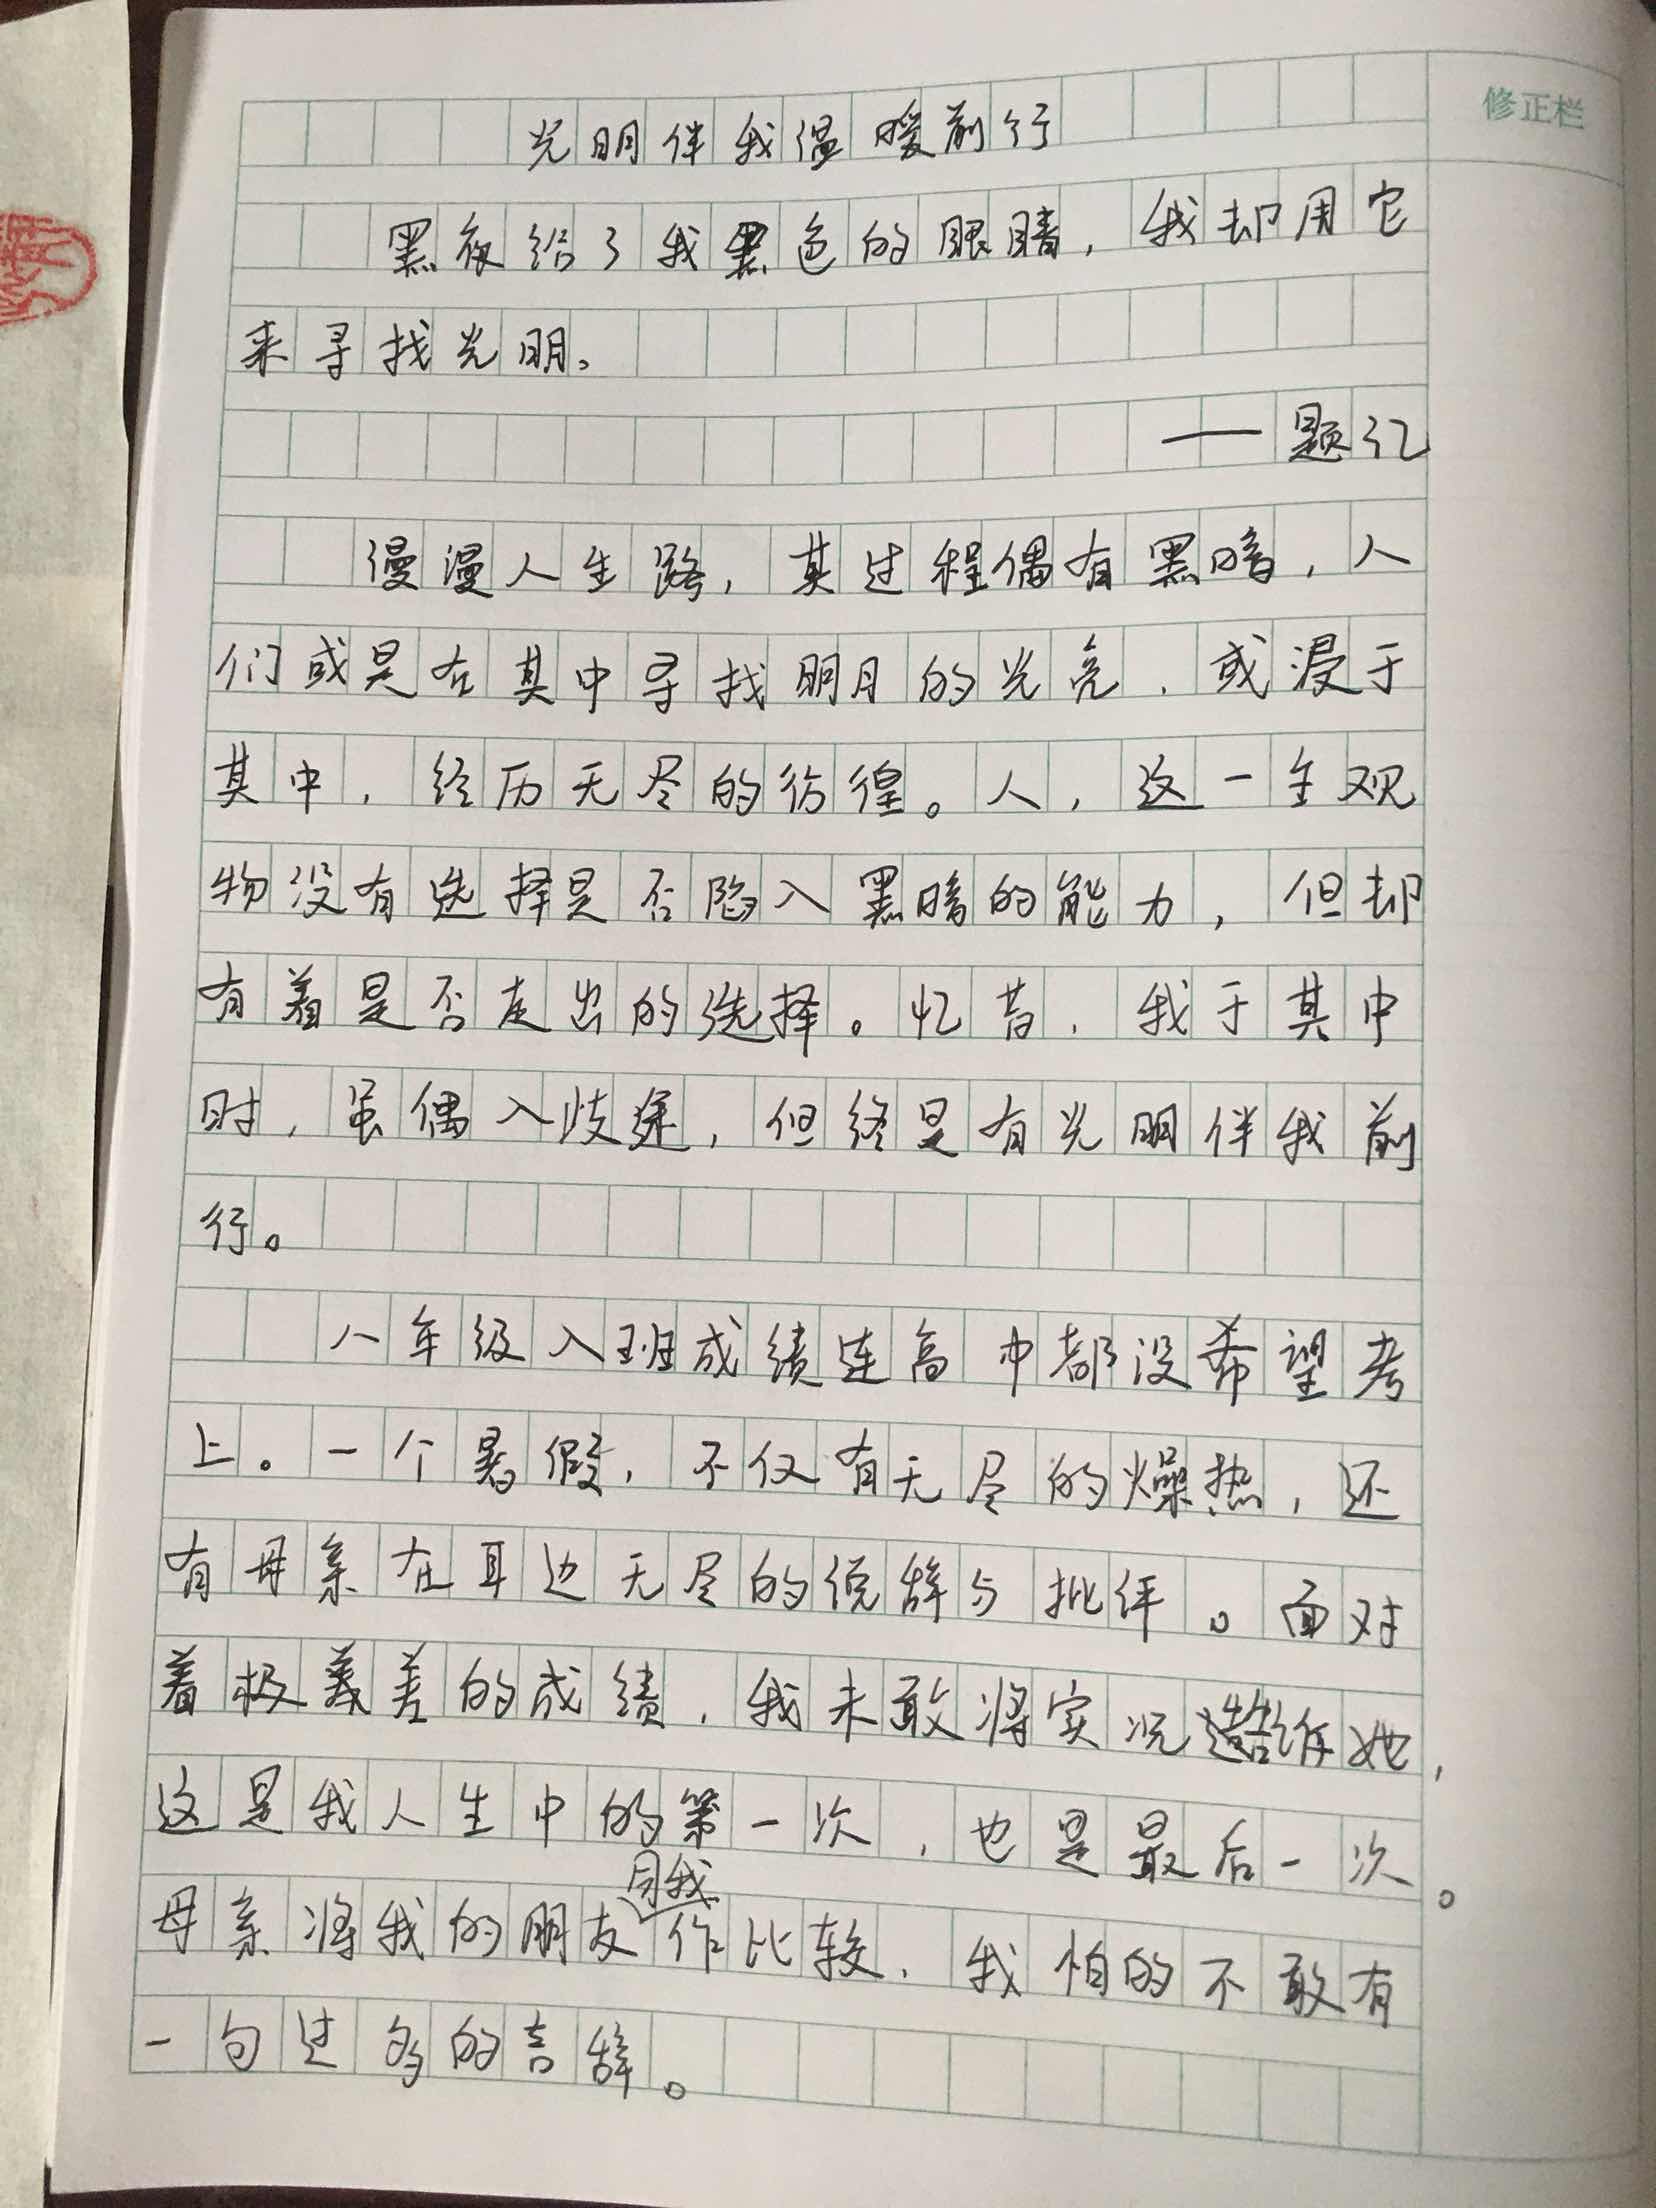 修正栏
光明伴我温暖前行
黑夜给了我黑色的眼睛，我却用它
来寻找光明。
——题记
漫漫人生路，其过程偶有黑暗，人
们或是在其中寻找明月的光亮，或浸于
其中，经历无尽的彷徨。人，这一主观
物没有选择是否陷入黑暗的能力，但却
有着是否走出的选择。忆昔，我于其中
时，虽偶入歧途，但终是有光明伴我前
行。
八年级入班成绩连高中都没希望考
上。一个暑假，不仅有无尽的燥热，还
有母亲在耳边无尽的说辞与批评。面对
着极差的成绩，我未敢将实况告诉她，
这是我人生中的第一次，也是最后一次。
母亲将我的朋友同我作比较，我怕的不敢有
一句过多的言辞。